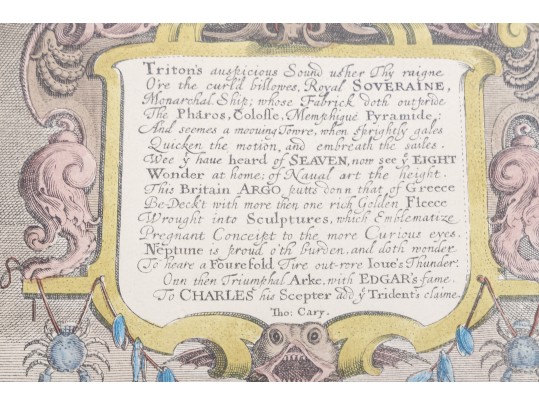 Triton's auspicious Sound usher Thy raigne
O're the curl'd billowes, Royal SOVERAINE,
Monarchal Ship; whose Fabrick doth outpride
The Pharos, Colosse, Memphique Pyramide,
And seemes a mooving Towre, when sprightly gales
Quicken the motion, and embreath the sailes.
Wee yͤ have heard of SEAVEN, now see yͤ EIGHT
Wonder at home; of Naual art the height.
This Britain ARGO putts down that of Greece
Be-Deckt with more then one rich Golden Fleece
Wrought into Sculptures, which Emblematize
Pregnant Conceipt to the more Curious eyes.
Neptune is proud o'th burden, and doth wonder
To heare a Fourefold Tire out-rore Ioue's Thunder.
Onn then Triumphal Arke, with EDGAR's fame,
To CHARLES his Scepter add yͤ Trident's claime.
Tho: Cary.